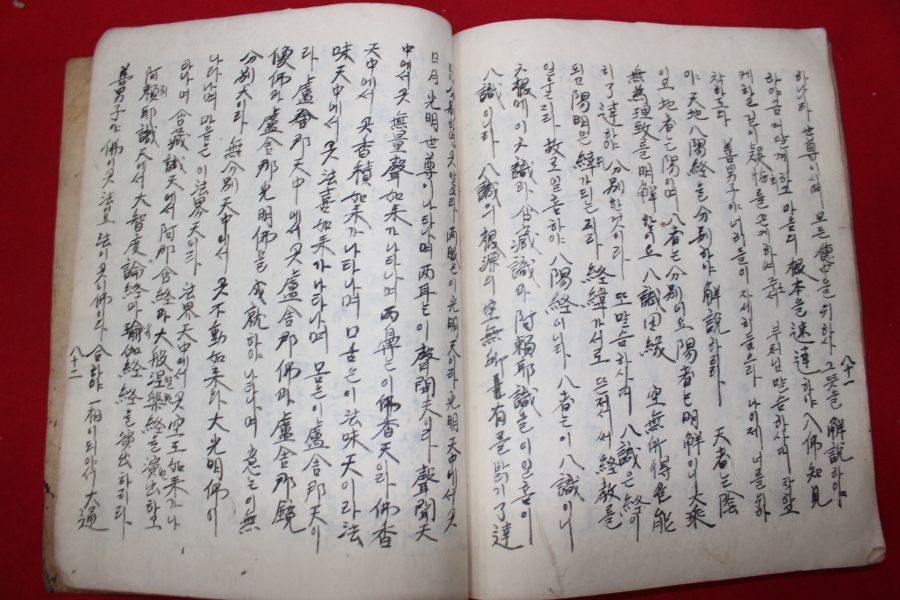 世尊이시여 모든 그 뜻을 解說하야
하야금 하고 마음의 根本을 速達하야 八佛知見
케하고 길이 疑悔를 끈케하여 주소서 부처님 말씀하사대 착하고
착하도다 善男子야 너히들이 자세히 들으라 나이제 너를 위하
야 天地八陽経을 分別하야 解說하리라 天者는 陰
이오 地者는 陽이며 八者는 分別이오 陽者는 明解이니 大乘
無為理致를 明解함이오 八識因縁 空無所得을 能
히 了達하야 分別한것이라 또 말씀하사대 八識은 経이
되고 陽明은 緯가되는지라 経緯가서로 経教를
故로 일흠하야 八陽経이니라 八者는 이 八識이니
六根에 이 六識과 含藏識와 阿賴耶識을 이일홈이
八識이니라 八識의 根源이 空無所有를 밝키 了達
八十一
分別하면 곳 알으리라 兩眼은 이 光明天이라 光明天中에서 곳
日月光明世尊이 나타나며 兩耳는 이 聲聞天이라 聲聞天
中에서 곳 無量聲如来가 나타나며 兩鼻는 이 佛香天이라 佛香
天中에서 곳 香積如来가 나타나며 口舌은 이 法味天이라 法
味天中에서 곳 法喜如来가 나타나며 몸은 이 盧舍那天이
라 盧舍那天中에서 곳 盧舍那佛과 盧舍那鏡
像佛과 盧舍那光明佛을 成就하야 나타나며 意는 이 無
分別天이라 無分別天中에서 곳 不動如来와 大光明佛이
나타나며 마음은 이 法界天이라 法界天中에서 곳 空王如来가 나
타나며 含藏識天에서 阿那含経과 大般涅槃経을 演出하고
阿賴耶識天에서 大智度論経과 瑜伽経経을 演出하리라
善男子야 佛이 곳 法이오 法이 곳 佛이라 合하야 一相이되야서 大通
八十二